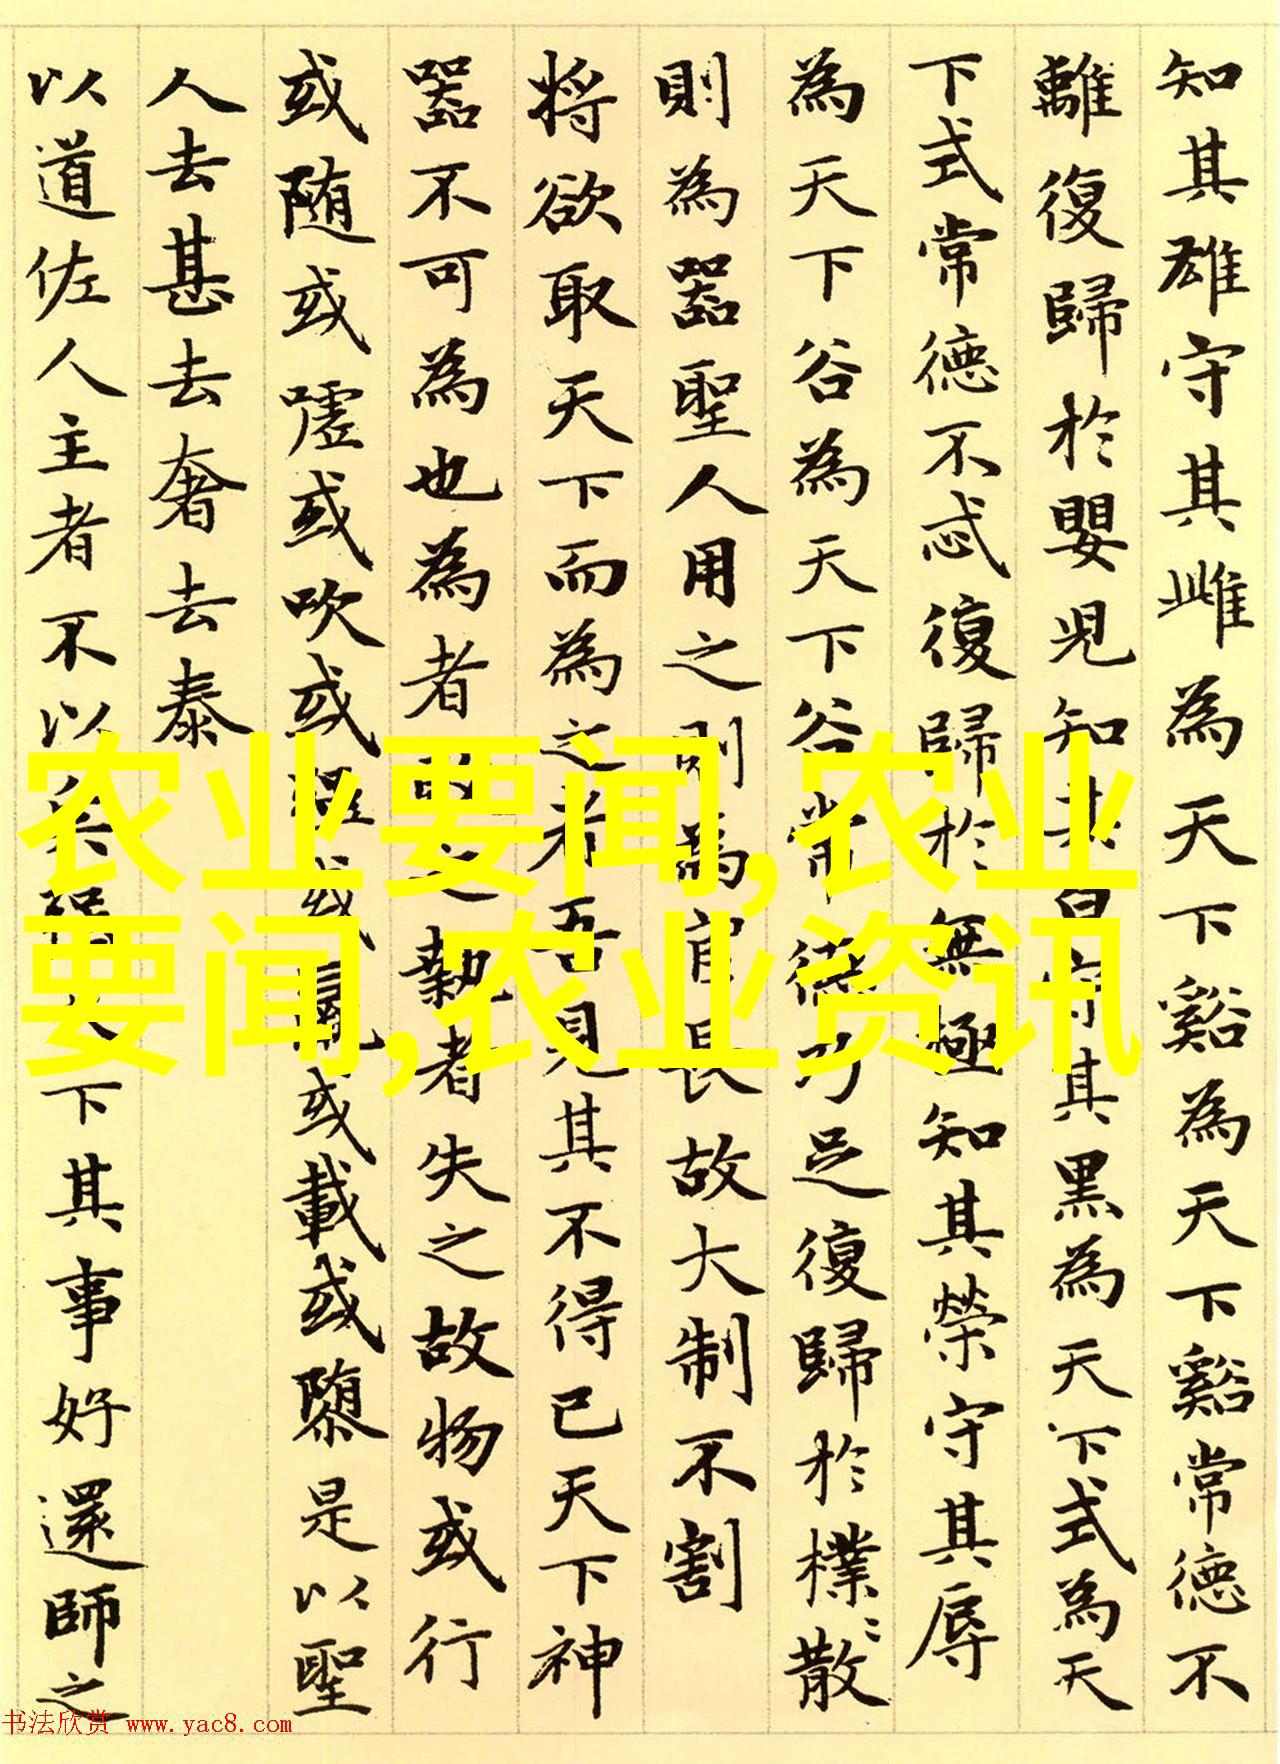 知其雄守其雌為天下谿為天下谿常德不
離復歸於嬰児知其白守其黒為天下式為天
下式常德不忒復歸於無極知其榮守其辱
為天下谷為天下谷常德乃足復歸於樸〻散
則為器聖人用之則為官長故大制不割
将欲取天下而為之者吾見其不得已天下神
器不可為也為者敗之執者失之故物或行
或随或嘘或吹或強或羸或載或隳是以聖
人去甚去奢去泰
以道佐人主者不以兵強天下其事好還師之
农业要闻,农业
要闻,农业资讯
书法欣赏 www.yac8.com